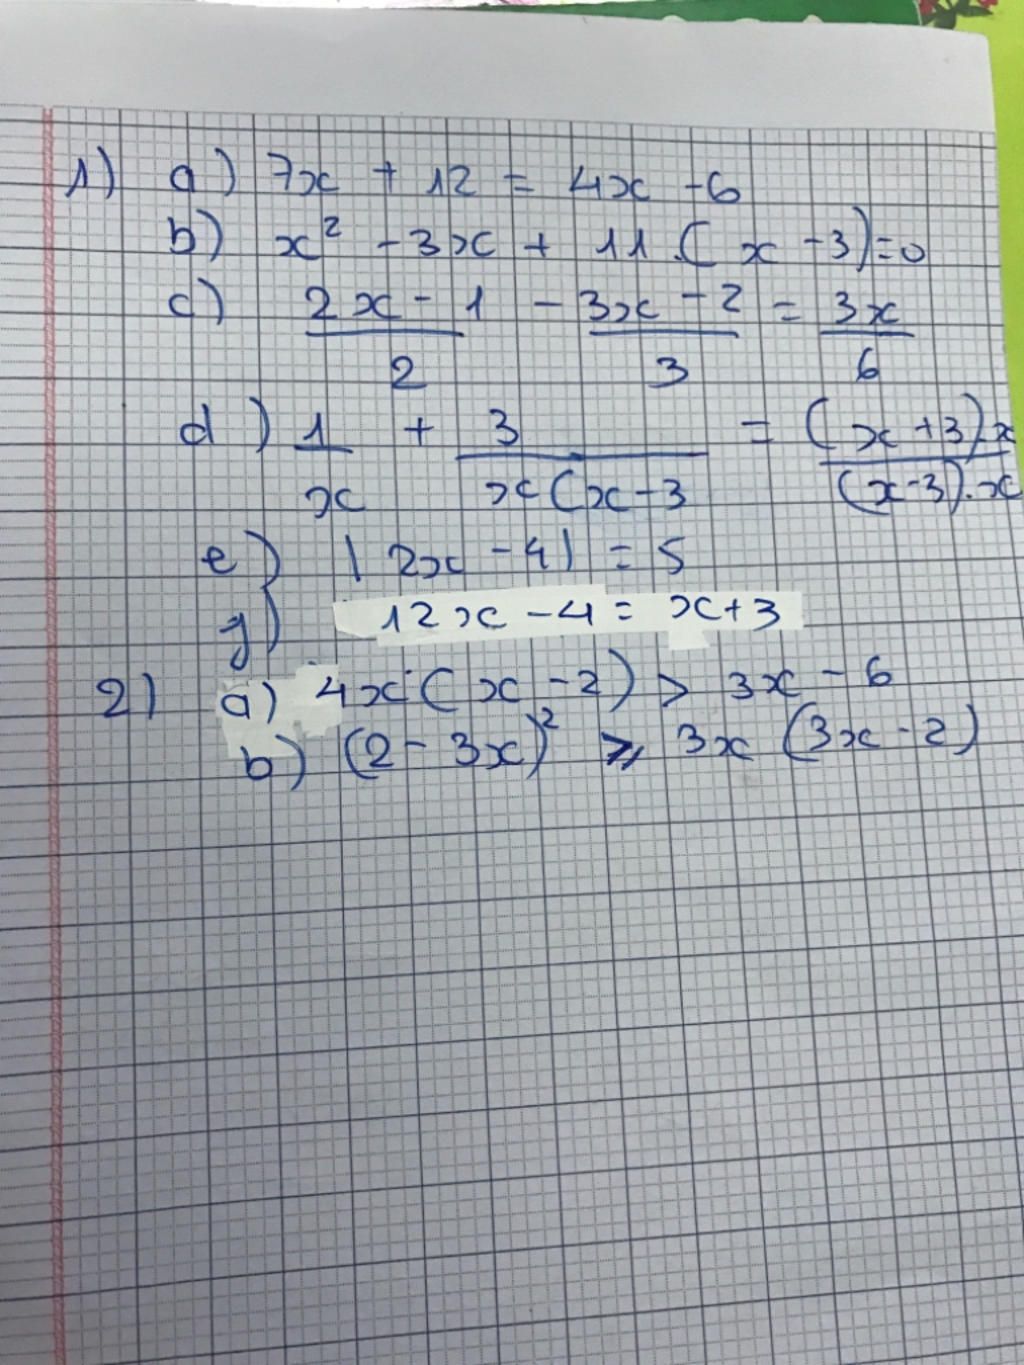 1) a) 7x + 12 = 4x - 6
b) x² - 3x + 11.(x - 3) = 0
c) 2x - 1 - 3x - 2 = 3x
2 3 6
d) 1 + 3 = (x + 3).x
x x(x - 3 (x - 3).x
e) |2x - 4| = 5
g) 12x - 4 = x + 3
2) a) 4x(x - 2) > 3x - 6
b) (2 - 3x)² ⩾ 3x(3x - 2)